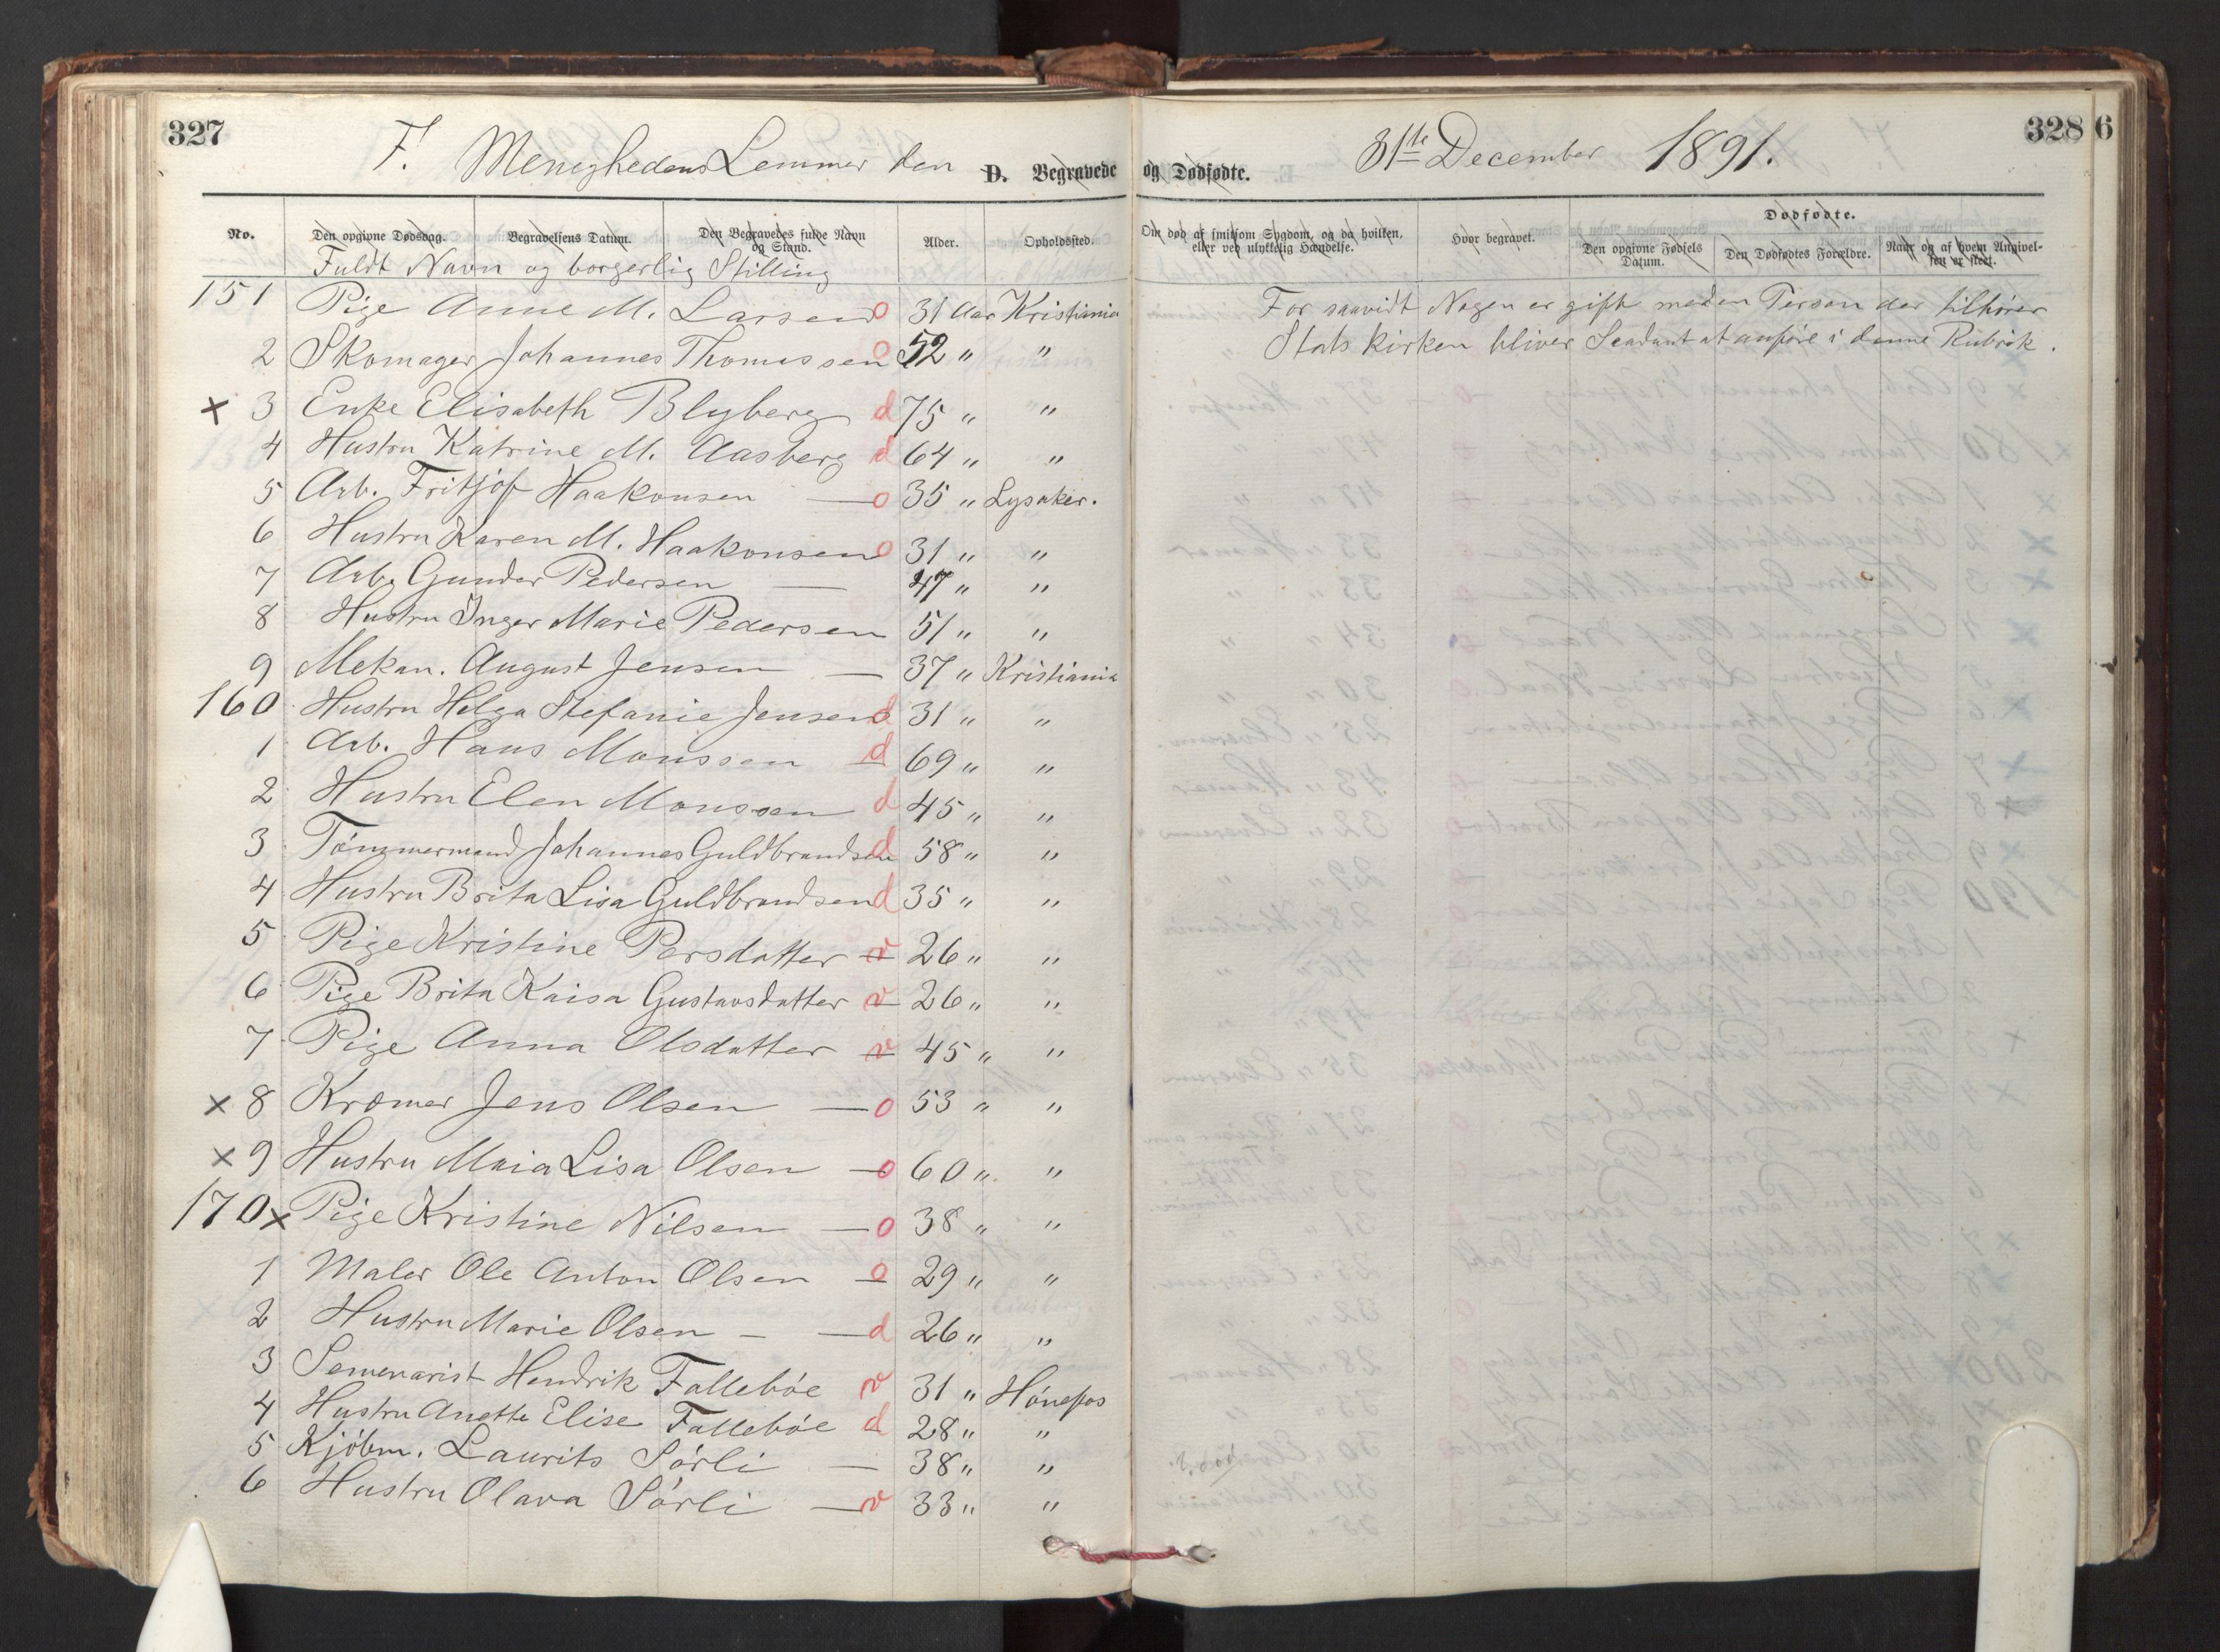 327
F. Menighedens Lemmer den 31te December 1891.
328 6
D. Begravede og Dødfødte.
No.
Den opgivne Dødsdag.
Begravelsens Datum.
Den Begravedes fulde Navn og Stand.
Alder.
Opholdssted.
Om død af smitsom Sygdom, og da hvilken, eller ved ulykkelig Hændelse.
Hvor begravet.
Dødfødte.
Den opgivne Fødsels Datum.
Den Dødfødtes Forældre.
Naar og af hvem Angivelsen er skeet.
Fuldt Navn og borgerlig Stilling
151 Pige Anne M. Larsen o 31 Aar Kristiania
2 Skomager Johannes Thomassen o 52 " "
x 3 Enke Elisabeth Blyberg d 75 " "
4 Hustru Katrine M. Aasberg d 64 " "
5 Arb. Fritjof Haakonsen — o 35 " Lysaker.
6 Hustru Karen M. Haakonsen o 31 " "
7 Arb. Gunder Pedersen — 47 " "
8 Hustru Inger Marie Pedersen 51 " "
9 Mekan. August Jensen — 37 " Kristiania
160 Hustru Helga Stefanie Jensen d 31 " "
1 Arb. Hans Monssen d 69 " "
2 Hustru Elen Monssen d 45 " "
3 Tømmermand Johannes Guldbrandsen d 58 " "
4 Hustru Brita Lisa Guldbrandsen d 35 " "
5 Pige Kristine Persdatter v 26 " "
6 Pige Brita Kaisa Gustavsdatter v 26 " "
7 Pige Anna Olsdatter v 45 " "
x 8 Kræmer Jens Olsen — o 53 " "
x 9 Hustru Maia Lisa Olsen — o 60 " "
170 x Pige Kristine Nilsen — o 38 " "
1 Maler Ole Anton Olsen — o 29 " "
2 Hustru Marie Olsen — — d 26 " "
3 Semenarist Hendrik Fallebøe v 31 " Hønefos
4 Hustru Anette Elise Fallebøe d 28 " "
5 Kjøbm. Laurits Sørli — 38 " "
6 Hustru Olava Sørli — v 33 " "
For saavidt Nogen er gift med en Person der tilhører
Statskirken bliver Saadant at anføre i denne Rubrik.